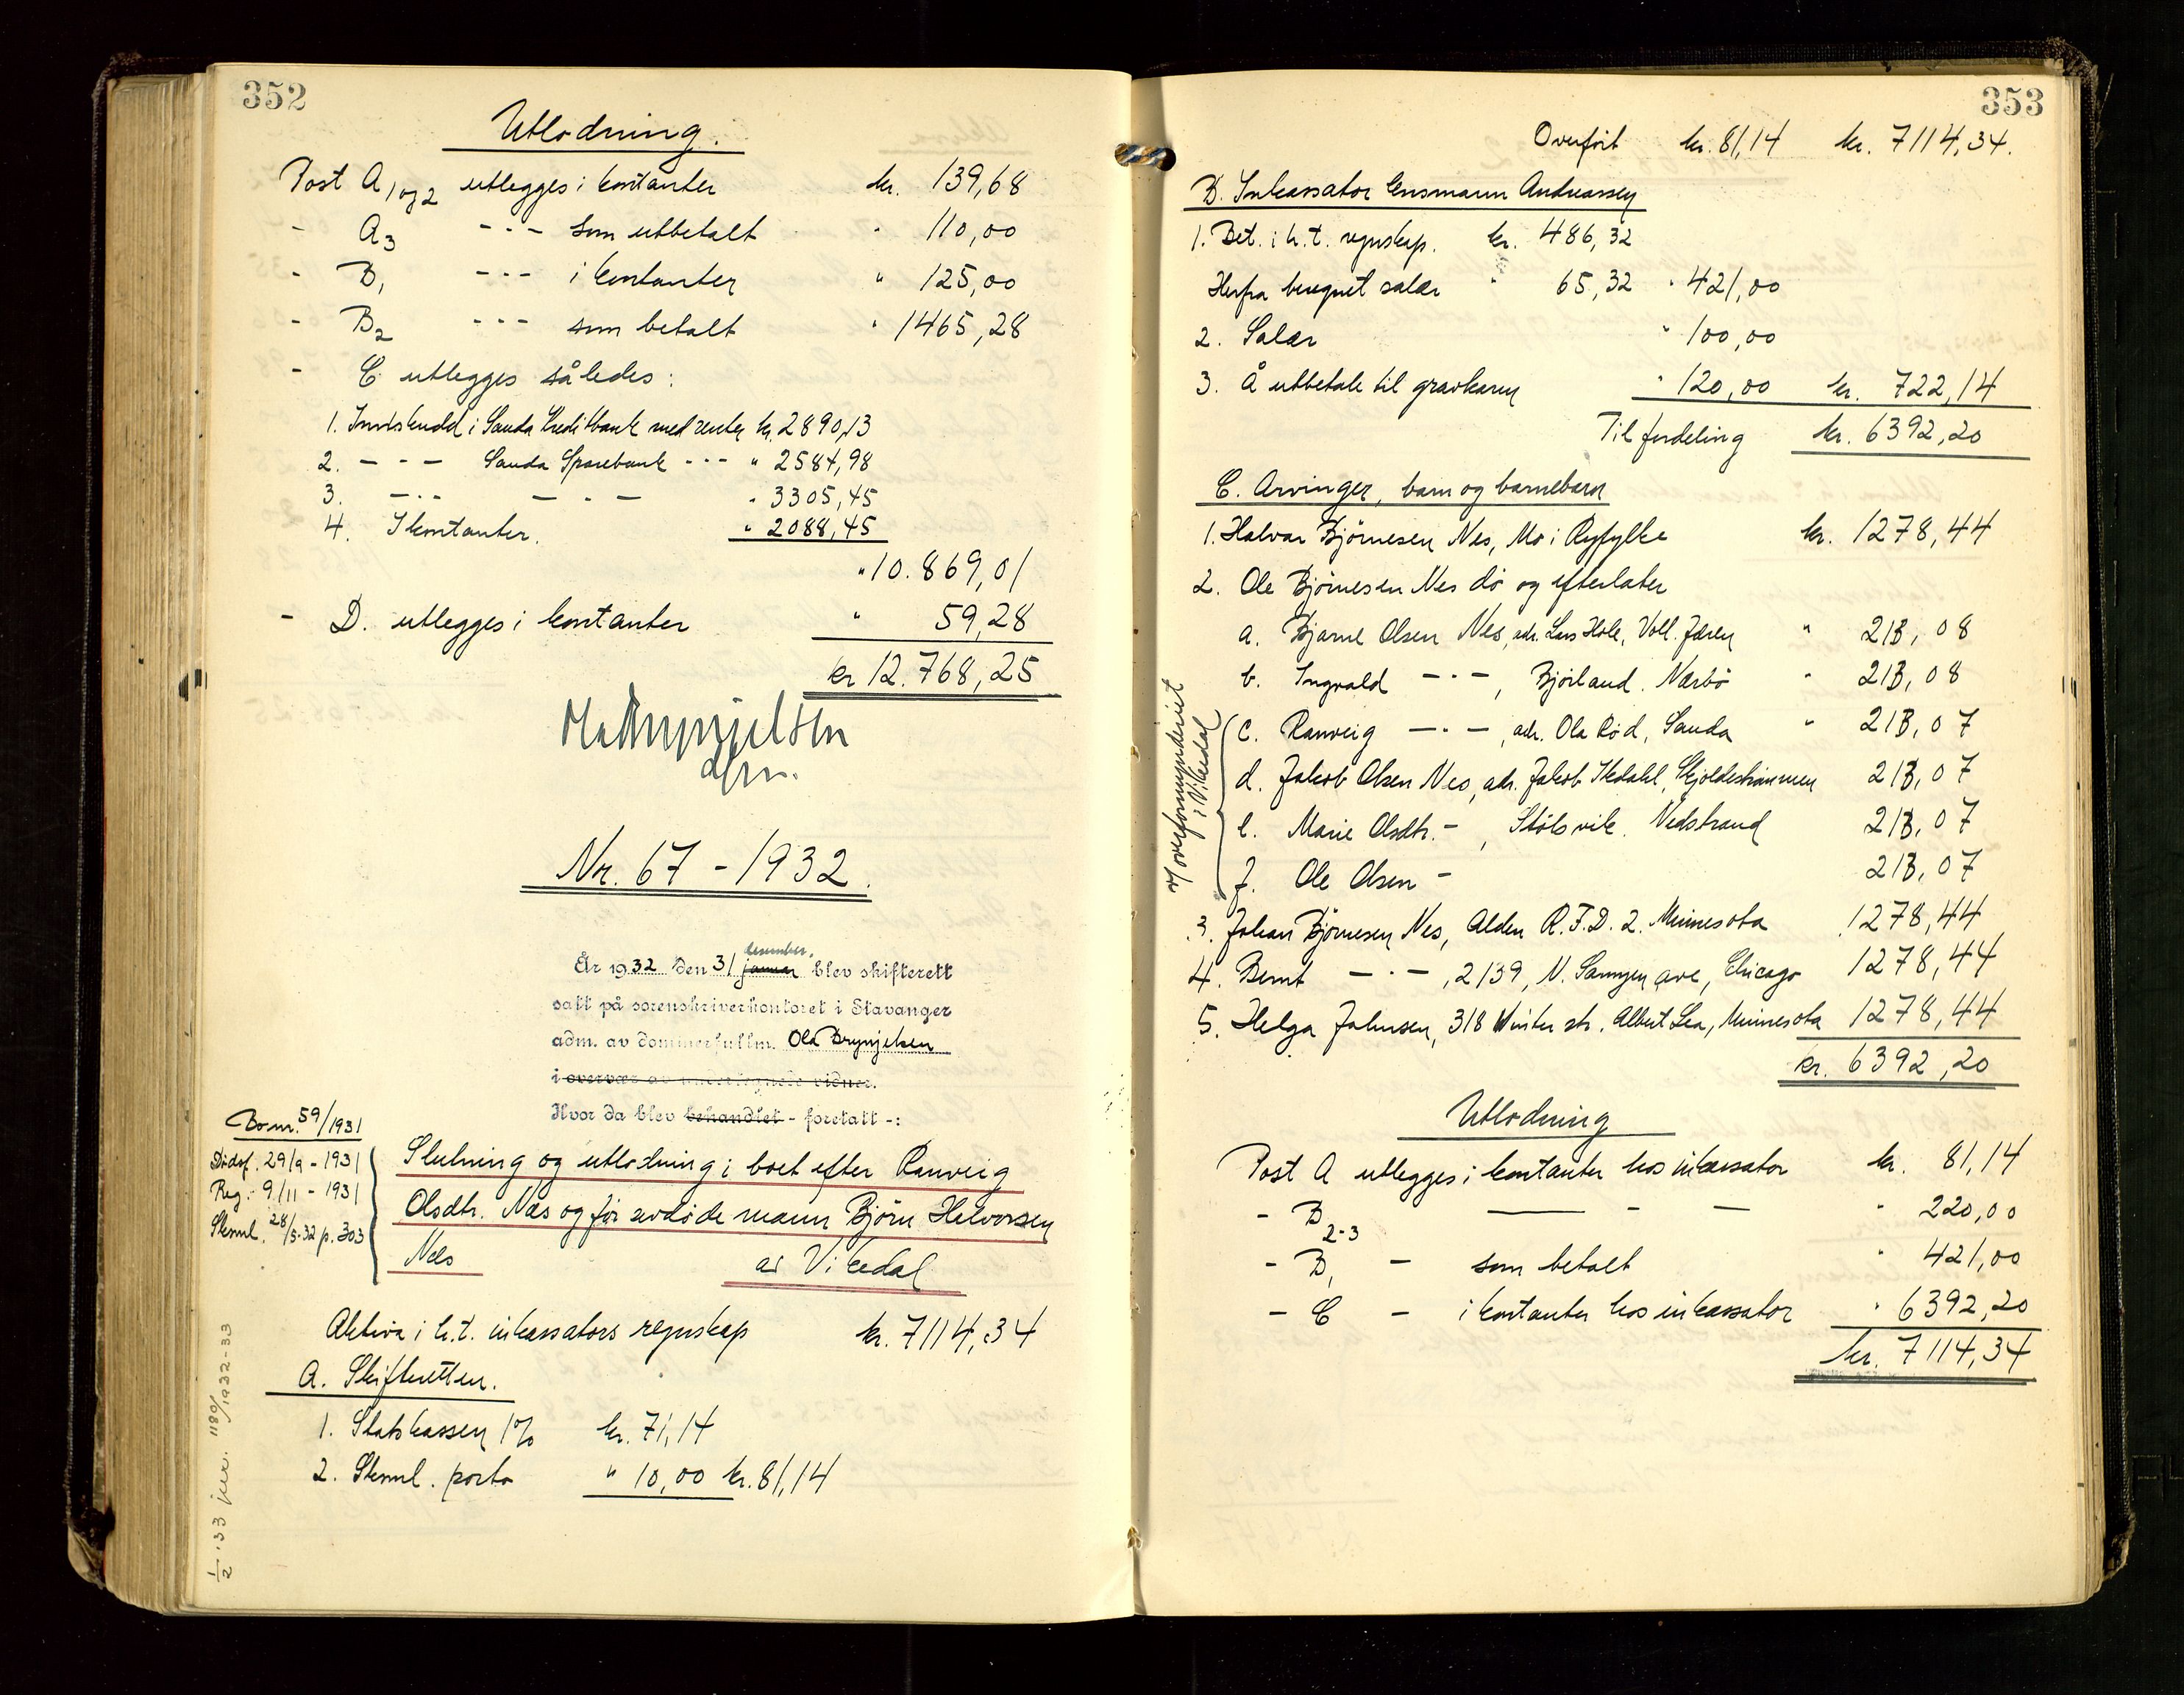 352
Utlodning.
Post A 1 og 2 utlegges i kontanter kr. 139,68
- A3 - - - som utbetalt " 110,00
- B1 - - - i kontanter " 125,00
- B2 - - - som betalt " 1465,28
- C utlegges således:
1. Innskudd i Sauda Kreditbank med renter kr. 2890,13
2. - - - Sauda Sparebank - - - " 2584,98
3. - - - - - - " 3305,45
4. I kontanter. " 2088,45
" 10.869,01
- D. utlegges i kontanter " 59,28
kr 12.768,25
Ola Brynjelsen
dfm.
Nr. 67 - 1932.
desember.
År 1932 den 31 januar blev skifterett
satt på sorenskriverkontoret i Stavanger
adm. av dommerfullm. Ola Brynjelsen
i overvær av undertegnede vidner.
Hvor da blev behandlet - foretatt -:
Bo nr. 59/1931
Dødsf. 29/9 - 1931
Reg. 9/11 - 1931
Skml. 28/5-32 p. 303
Slutning og utlodning i boet efter Ranveig
Olsdtr. Næs og før avdøde mann Björn Halvorsen
Næs av Vikedal
Aktiva i h.t. inkassators regnskap kr. 7114,34
A. Skifteretten.
1. Statskassen 1% kr. 71,14
2. Skml. porto " 10,00 kr. 81,14
1/2 33 jnr. 1180/1932-33
353
Overført kr. 81,14 kr. 7114,34.
B. Inkassator Ensmann Andreassen
1. Bet. i h.t. regnskap. kr. 486,32
Herfra beregnet salær " 65,32 " 421,00
2. Salær " 100,00
3. Å utbetale til gravkaren " 120,00 kr. 722,14
Til fordeling kr. 6392,20
C. Arvinger, barn og barnebarn
1. Halvar Bjørnesen Nes, Mo i Ryfylke kr. 1278,44
2. Ole Bjørnesen Nes dö og efterlater
a. Bjarne Olsen Nes, adr. Lars Hole, Voll. Jæren " 213,08
b. Ingvald - " -, Bjorland. Nærbö " 213,08
c. Ranveig - " -, adr. Ola Rød, Sauda " 213,07
d. Jakob Olsen Nes, adr. Jakob Ikdahl, Skjoldestraumen 213,07
e. Marie Olsdtr. -, Stølsvik. Nedstrand 213,07
f. Ole Olsen - 213,07
v/ overformynderiet
i Vikedal
3. Johan Bjørnesen Nes, Alden R.F.D. 2. Minnesota 1278,44
4. Bernt - " -, 2139, N. Sawyer ave, Chicago 1278,44
5. Helga Johnsen, 318 Winter str. Albert Lea, Minnesota 1278,44
kr. 6392,20
Utlodning
Post A utlegges i kontanter hos inkassator kr. 81,14
- B 2-3 - - - " 220,00
- B1 - som betalt " 421,00
- C - i kontanter hos inkassator " 6392,20
kr. 7114,34